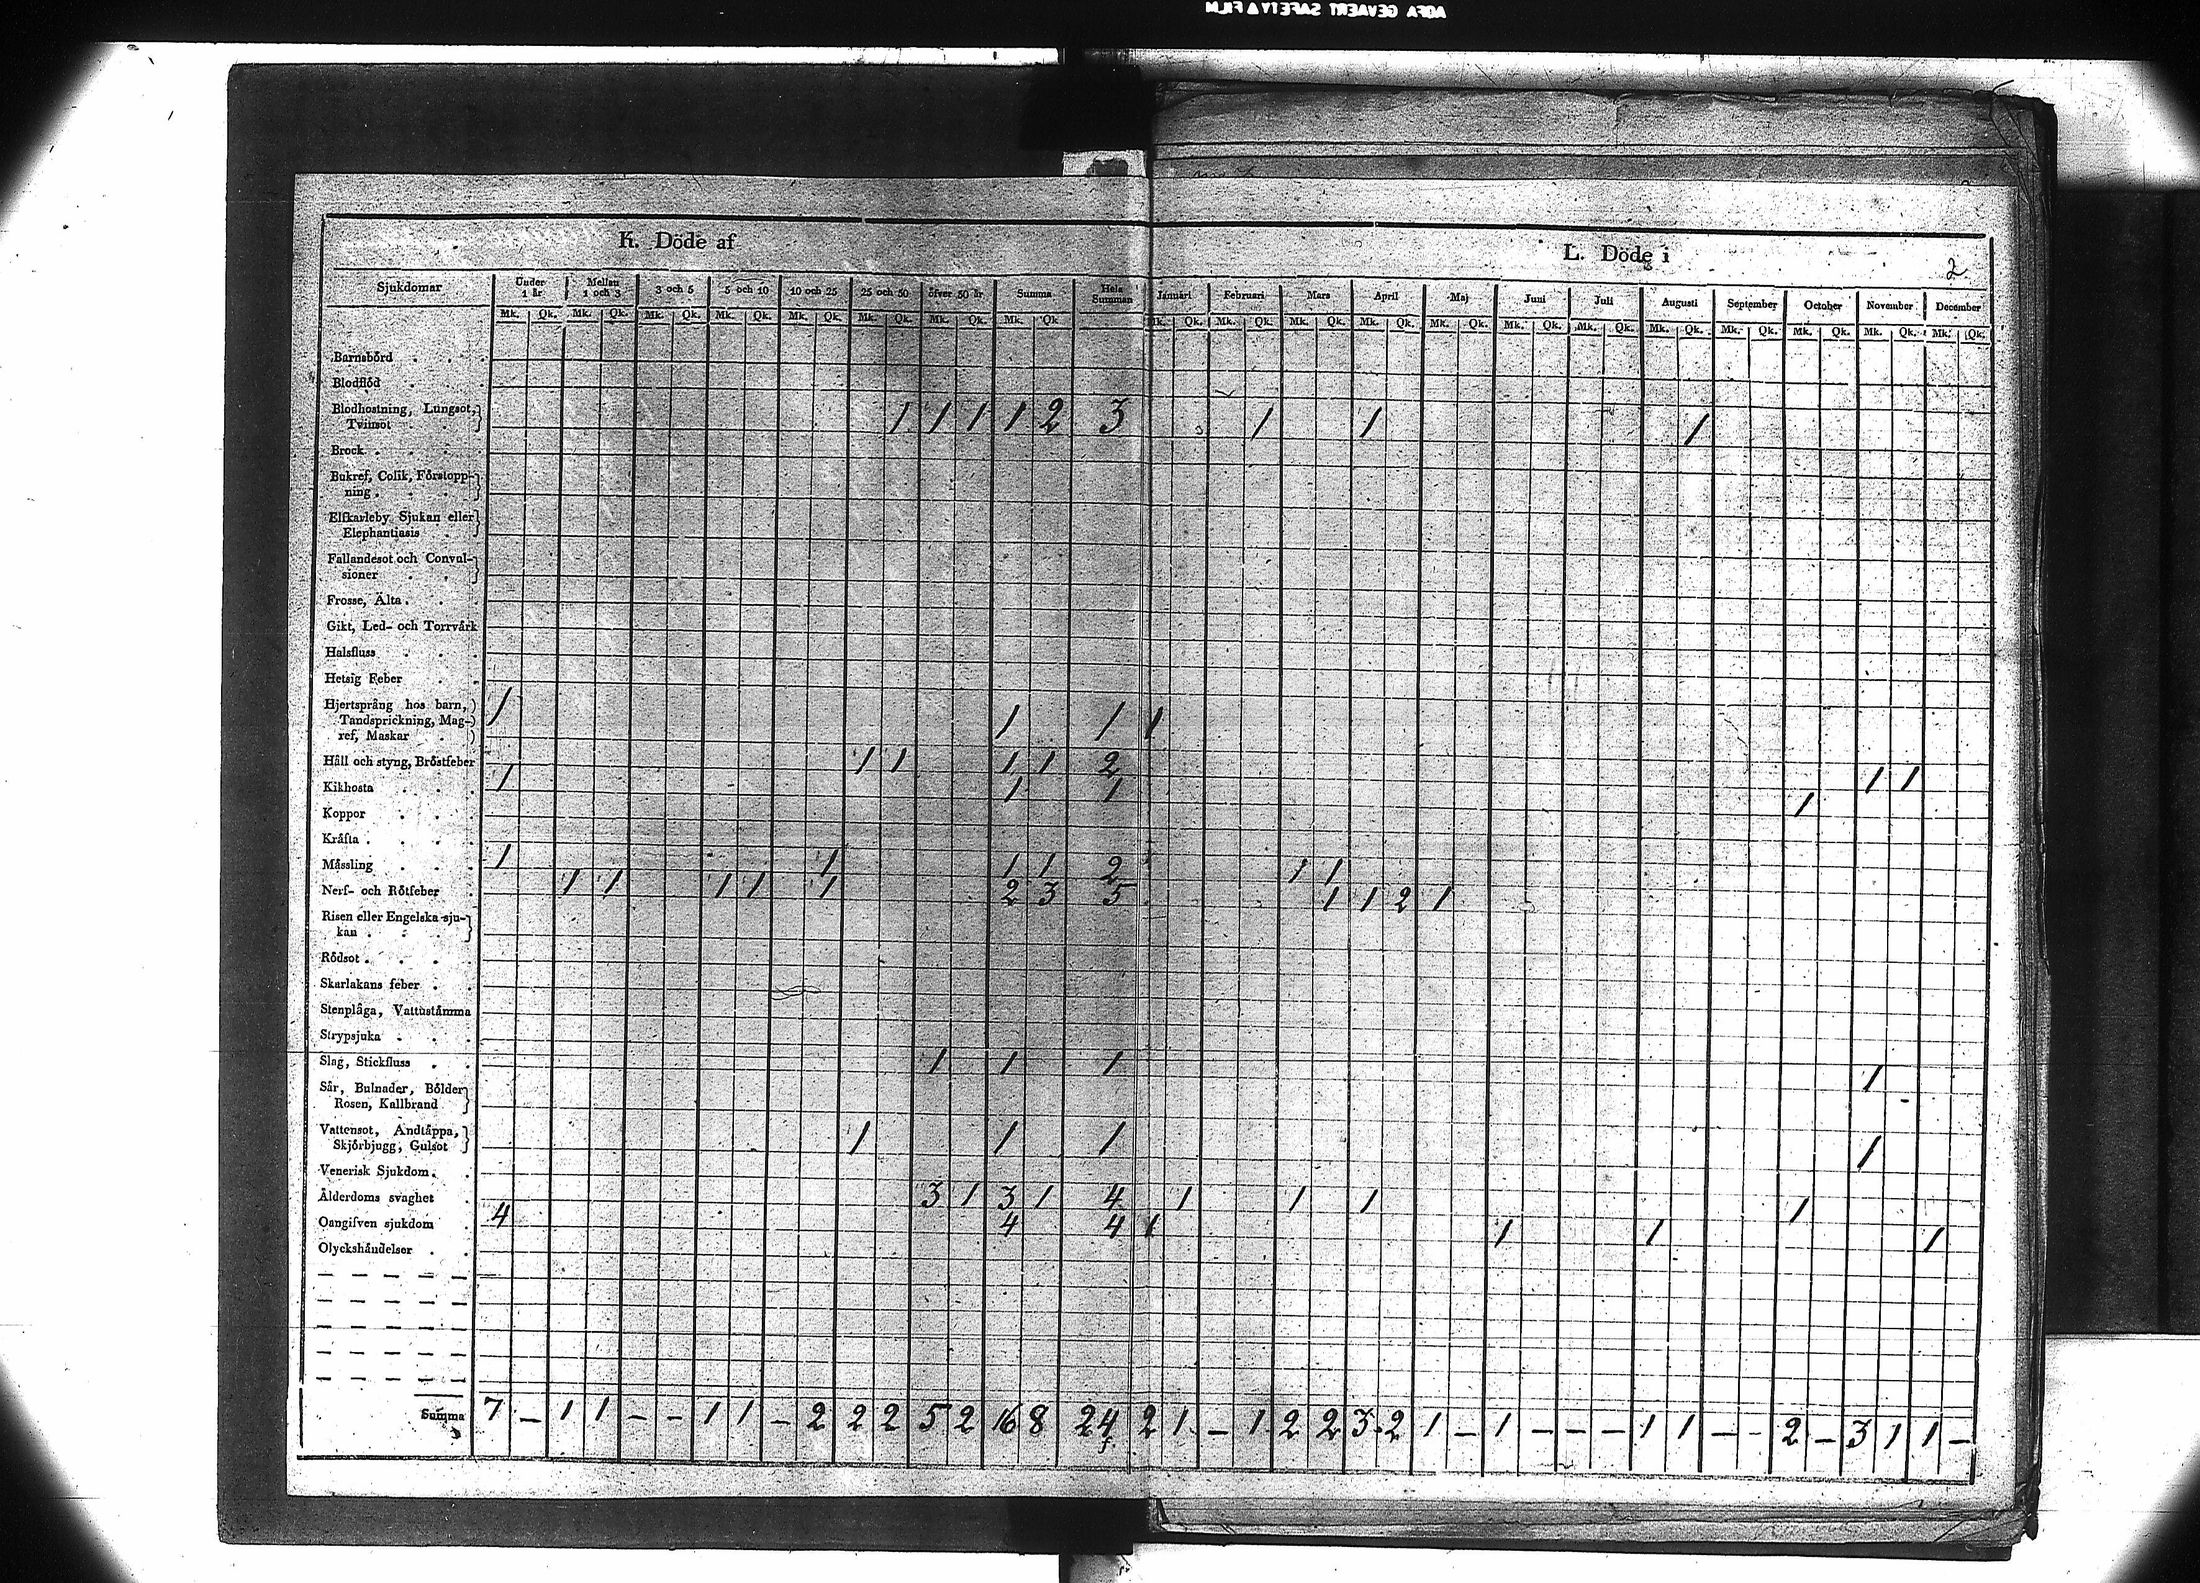 AGFA GEVAERT SAFETY FILM
K. Döde af
L. Döde i
2
Sjukdomar Under 1 år Mellan 1 och 3 3 och 5 5 och 10 10 och 25 25 och 50 öfver 50 år Summa Hela Summan Januari Februari Mars April Maj Juni Juli Augusti September October November December
Mk. Qk. Mk. Qk. Mk. Qk. Mk. Qk. Mk. Qk. Mk. Qk. Mk. Qk. Mk. Qk Mk. Qk. Mk. Qk. Mk. Qk. Mk. Qk. Mk. Qk. Mk. Qk. Mk. Qk. Mk. Qk. Mk. Qk. Mk. Qk. Mk. Qk. Mk. Qk.
Barnsbörd
Blodflöd
Blodhostning, Lungsot,
Tvinsot 1 1 1 1 2 3 1 1 1
Brock
Bukref, Colik, Förstopp-
ning
Elfkarleby Sjukan eller
Elephantiasis
Fallandesot och Convul-
sioner
Frosse, Älta
Gikt, Led- och Torrvärk
Halsfluss
Hetsig Feber
Hjertsprång hos barn,
Tandsprickning, Mag- 1 1 1 1
ref, Maskar
Håll och styng, Bröstfeber 1 1 1 1 2 1 1
Kikhosta 1 1 1 1
Koppor
Kräfta
Mässling 1 1 1 1 2 1 1
Nerf- och Rötfeber 1 1 1 1 1 2 3 5 1 1 2 1
Risen eller Engelska sju-
kan
Rödsot
Skarlakans feber
Stenplåga, Vattustämma
Strypsjuka
Slag, Stickfluss 1 1 1 1
Sår, Bulnader, Bölder
Rosen, Kallbrand
Vattensot, Andtäppa,
Skjörbjugg, Gulsot 1 1 1 1
Venerisk Sjukdom
Ålderdoms svaghet 3 1 3 1 4 1 1 1 1
Oangifven sjukdom 4 4 4 1 1 1 1
Olyckshändelser
Summa 7 – 1 1 – – 1 1 – 2 2 2 5 2 16 8 24 2 1 – 1 2 2 3 2 1 – 1 – – – 1 1 – – 2 – 3 1 1 –